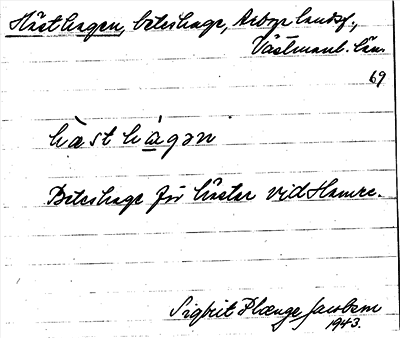 Hästhagen, beteshage, Arboga landsf.,
Västmanl. län.
69
hàsthàgən
Beteshage för hästar vid Hamre.
Sigbrit Plænge Jacobson
1943.